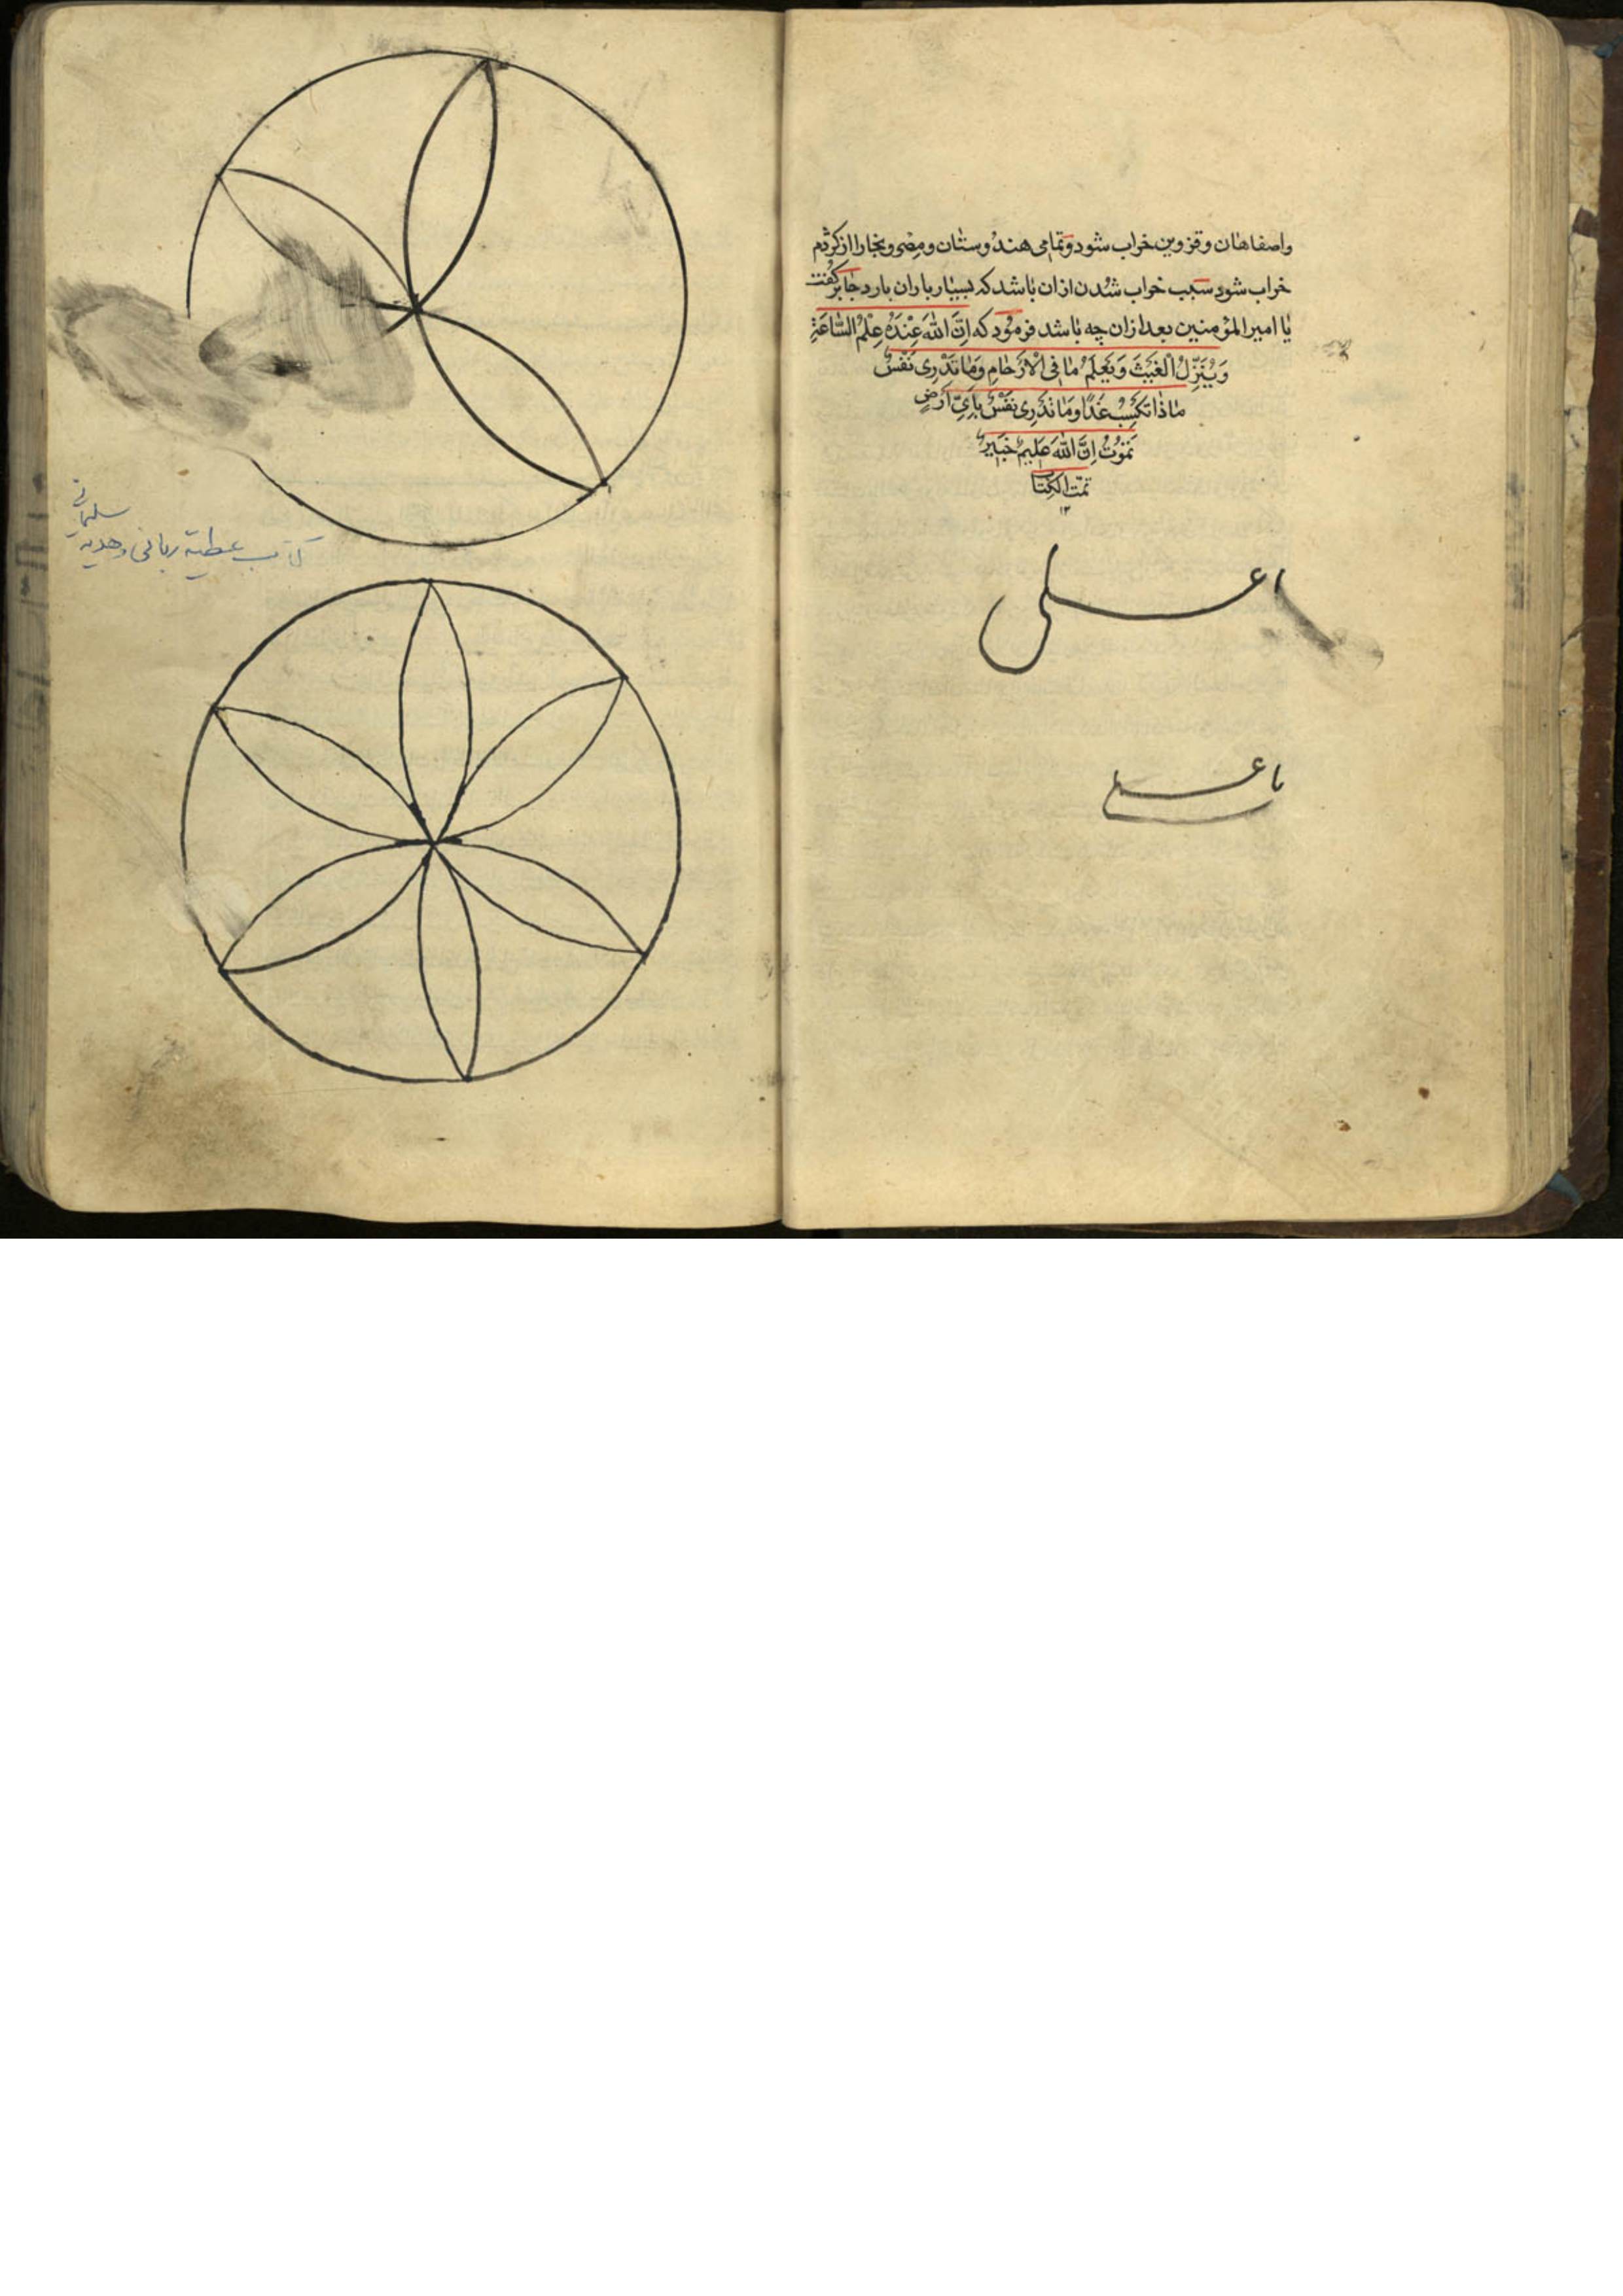 واصفاهان و قزوین خراب شود و تمامی هندوستان و مصر و بخارا از کژدم
خراب شود سبب خراب شدن ازان باشد که بسیار باران بارد جابر گفت
یا امیر المؤمنین بعد ازان چه باشد فرمود که اِنَّ اللهَ عِنْدَهُ عِلْمُ السَّاعَةِ
وَیُنَزِّلُ الْغَیْثَ وَیَعْلَمُ مَا فِی الْاَرْحَامِ وَمَا تَدْرِی نَفْسٌ
مَاذَا تَکْسِبُ غَدًا وَمَا تَدْرِی نَفْسٌ بِاَیِّ اَرْضٍ
تَمُوْتُ اِنَّ اللهَ عَلِیمٌ خَبِیرٌ
تمت الکتاب
۱۲
یا علی
یا علی
کتاب عطیة ربانی و هدیه
سلیمانی